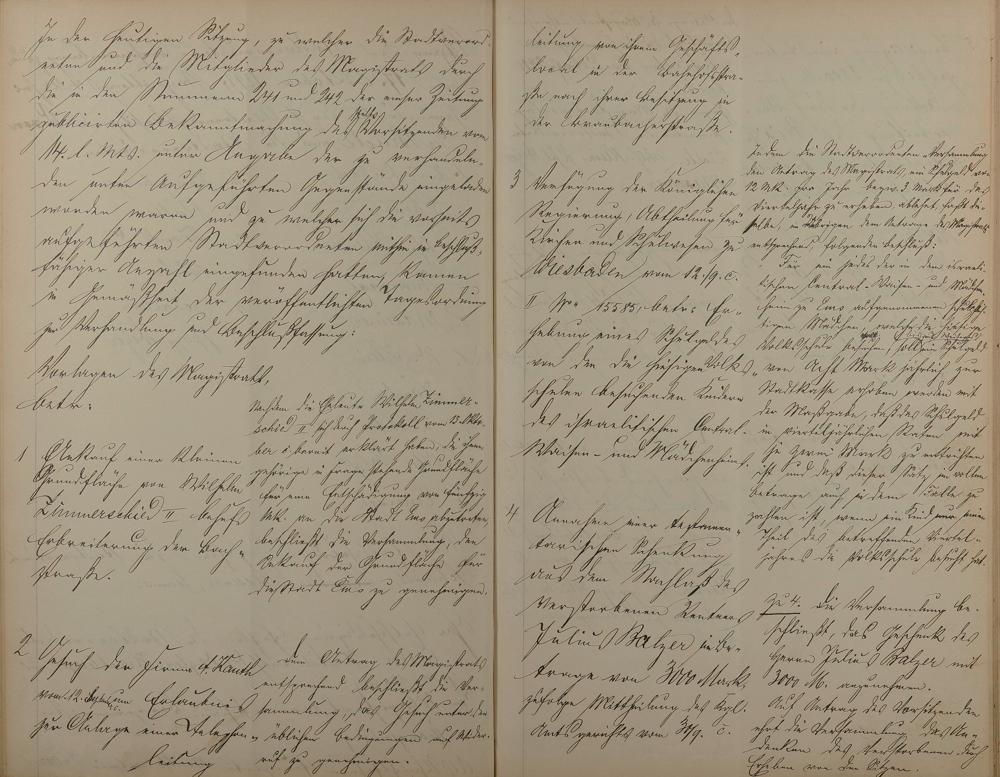 In der heutigen Sitzung, zu welcher die Stadtverord-
neten und die Mitglieder des Magistrats durch
die in den Nummern 241 und 242 der Emser Zeitung
publicirten Bekanntmachung des Vorsitzenden vom
14. l. Mts. unter Angabe der zu verhandeln-
den unten aufgeführten Gegenstände eingeladen
worden waren und zu welcher sich die vorseits
aufgeführten Stadtverordneten mithin in beschluß-
fähiger Anzahl eingefunden hatten, kamen
in Gemäßheit der veröffentlichten Tagesordnung
zur Verhandlung und Beschlußfassung:
Vorlagen des Magistrats,
betr:
1 Ankauf einer kleinen
Grundfläche von Wilhelm
Zimmerschied II behufs
Erbreiterung der Bach-
straße.
Nachdem die Eheleute Wilhelm Zimmer-
schied II sich durch Protokoll vom 13. Okto-
ber c. bereit erklärt haben, die ihnen
gehörige in Frage stehende Grundfläche
für eine Entschädigung von fünfzig
Mk. an die Stadt Ems abzutreten,
beschließt die Versammlung, den
Ankauf der Grundfläche für
die Stadt Ems zu genehmigen.
2 Gesuch der Firma A. Kauth
vom 12. um Erlaubniß
zur Anlage einer Telephon-
leitung
Dem Antrag des Magistrats
entsprechend beschließt die Ver-
sammlung, das Gesuch unter den
üblichen Bedingungen auf Wider-
ruf zu genehmigen.
leitung von ihrem Geschäfts-
local in der Bahnhofstra-
ße nach ihrer Besitzung in
der Braubacherstraße.
3 Verfügung der Königlichen
Regierung, Abtheilung für
Kirchen und Schulwesen zu
Wiesbaden vom 12./9. c.
II No 15585, betr: Er-
hebung eines Schulgeldes
von den die hiesigen Volks-
schulen besuchenden Kindern
des israelitischen Central-
Waisen- und Mädchenheims.
Indem die Stadtverordneten-Versammlung
den Antrag des Magistrats, ein Schulgeld von
12 Mk. pro Jahr bezw. 3 Mark für das
Vierteljahr zu erheben ablehnt, faßt die-
selbe, im Übrigen dem Antrage des Magistrats
entsprechend, folgenden Beschluß:
Für ein jedes der in dem israeli-
tischen Central-Waisen- und Mädchen-
heim zu Ems aufgenommenen schulpflich-
tigen Mädchen, welche die hiesige
Volksschule besuchen, soll ein Schulgeld
von Acht Mark jährlich zur
Stadtkasse erhoben werden mit
der Maßgabe, daß das Schulgeld
in vierteljährlichen Raten mit
je zwei Mark zu entrichten
ist und daß dieser Satz im vollen
Betrage auch in dem Falle zu
zahlen ist, wenn ein Kind nur einen
Theil des betreffenden Viertel-
jahres die Volksschule besucht hat.
4 Annahme einer testamen-
tarischen Schenkung
aus dem Nachlaß des
verstorbenen Rentners
Julius Balzer im Be-
trage von 3000 Mark,
zufolge Mittheilung des Kgl.
Amtsgerichts vom 30/9. c.
Zu 4. Die Versammlung be-
schließt, das Geschenk des
Herrn Julius Balzer mit
3000 M. anzunehmen.
Auf Antrag des Vorsitzenden
ehrt die Versammlung das An-
denken des Verstorbenen durch
Erheben von den Sitzen.